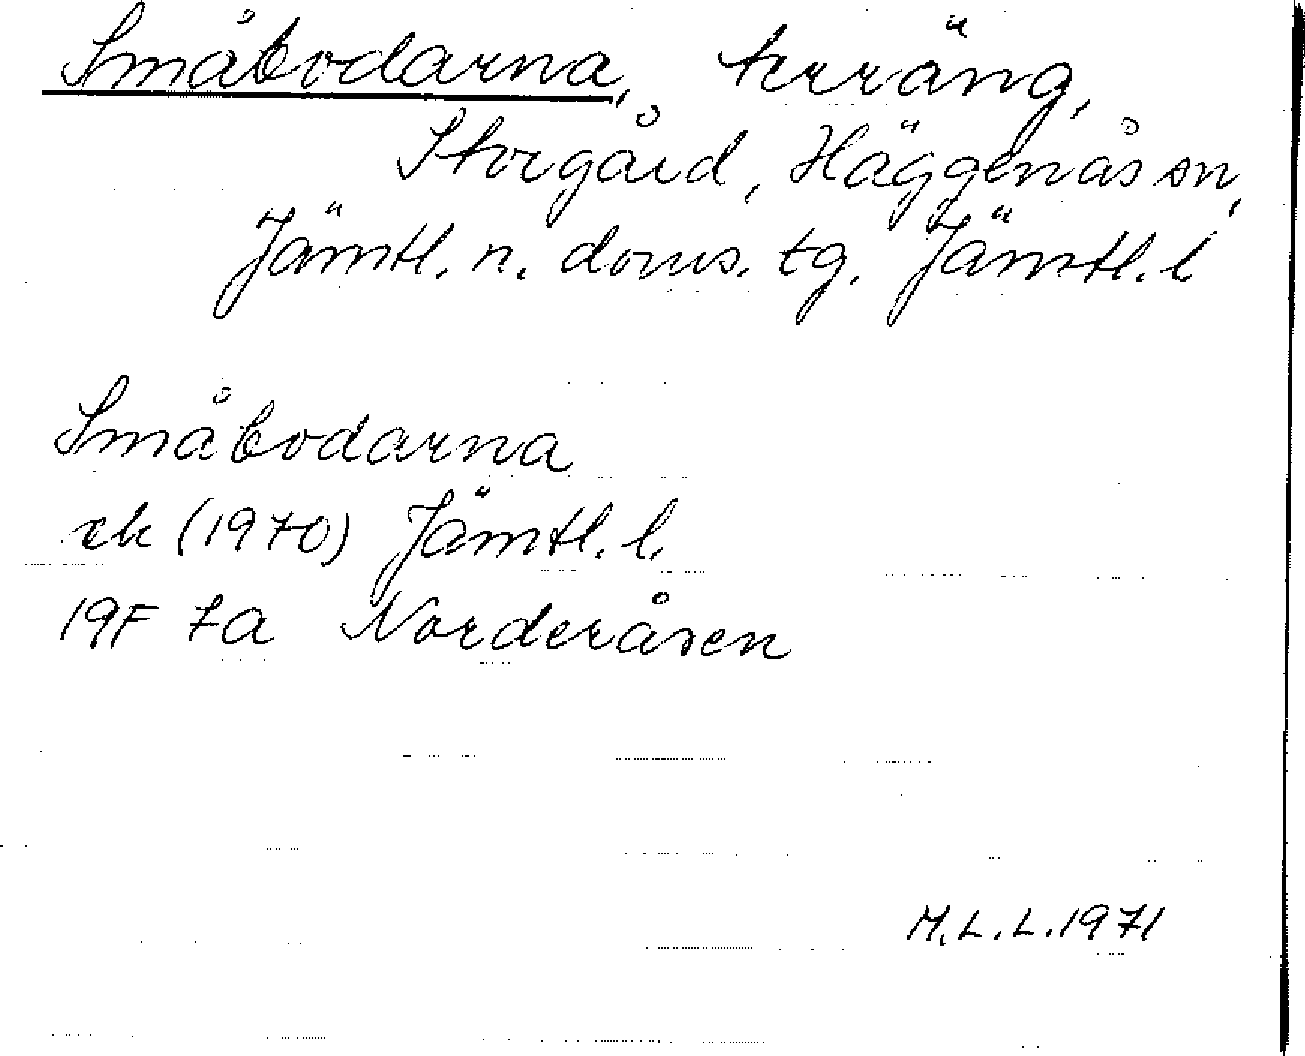 Småbodarna, terräng,
Storgård, Häggenås sn,
Jämtl. n. doms. tg. Jämtl. l
Småbodarna
ek (1970) Jämtl. l.
19F 7a Norderåsen
M.L.L. 1971